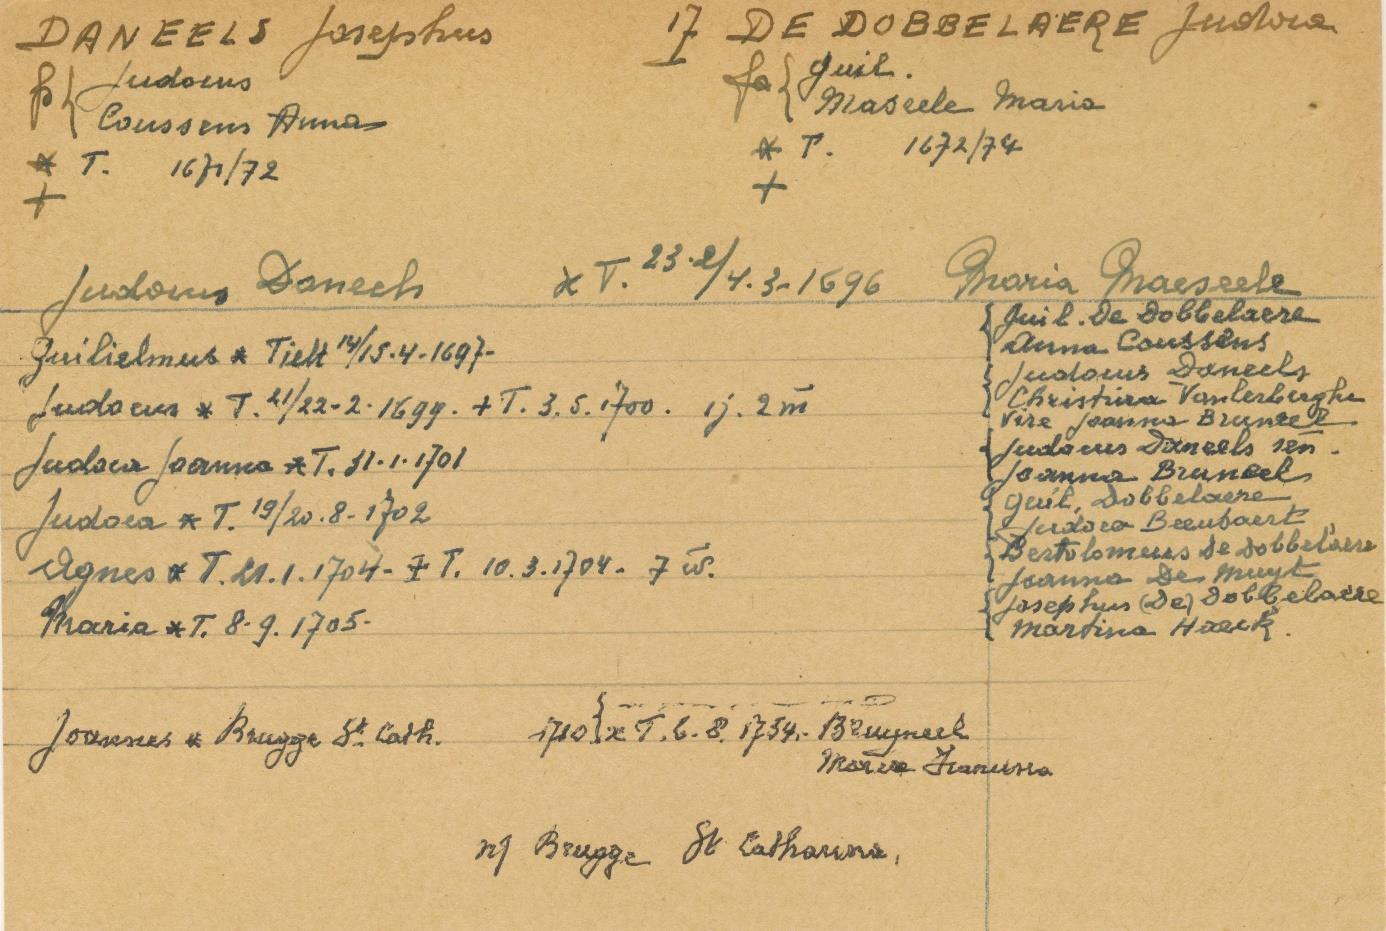 DANEELS Josephus 17 DE DOBBELAERE Judoca
fs { Judocus fa { Guil.
Coussens Anna Maseele Maria
* T. 1671/72 * T. 1672/74
+ +
Judocus Daneels x T. 23.2/4.3-1696 Maria Maeseele
{ Guil. De Dobbelaere
Guilielmus * Tielt 14/15.4-1697- Anna Coussens
{ Judocus Daneels
Judocus * T. 21/22-2-1699. + T. 3.5.1700. ij. 2 m Christina Vanlerberghe
Vire Joanna Bruneel
Judoca Joanna * T. 31.1.1701 { Judocus Daneels sen.
Joanna Bruneel
Judoca * T. 19/20.8-1702 { Guil. Dobbelaere
Judoca
Agnes * T. 21.1.1704- + T. 10.3.1704- 7 w. { Bertolomeus De Dobbelaere
Joanna De Muyt
Maria * T. 8-9.1705- { Josephus (De) Dobbelaere
Martina Haeck.
Joannes * Brugge St. Cath. 1710 } x T. 6-8.1734.- Bruyneel
Maria Francisca
Brugge St Catharina.